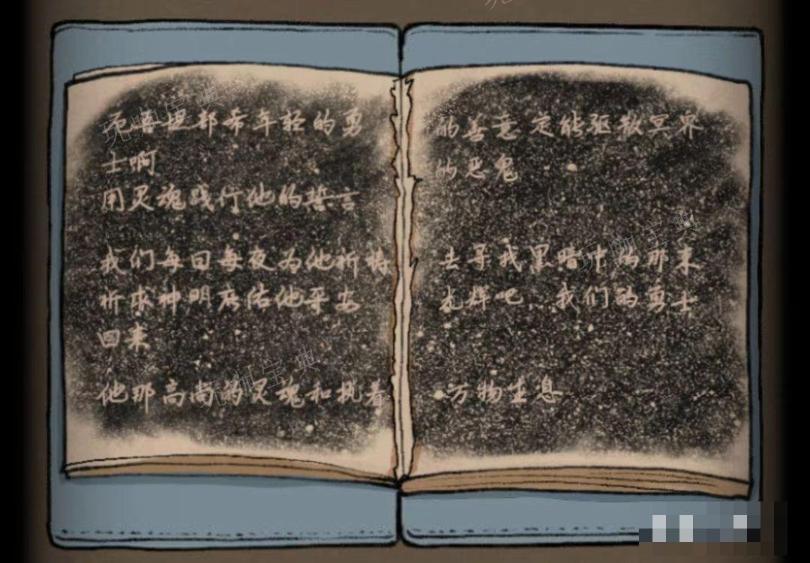 年轻的勇
士啊
用灵魂践行他的誓言
我们每日每夜为他祈祷
祈求神明庇佑他平安
回来
他那高尚的灵魂和执着
的善意定能驱散冥界
的恶鬼
去寻找黑暗中的那束
光辉吧…我们的勇士
万物生息